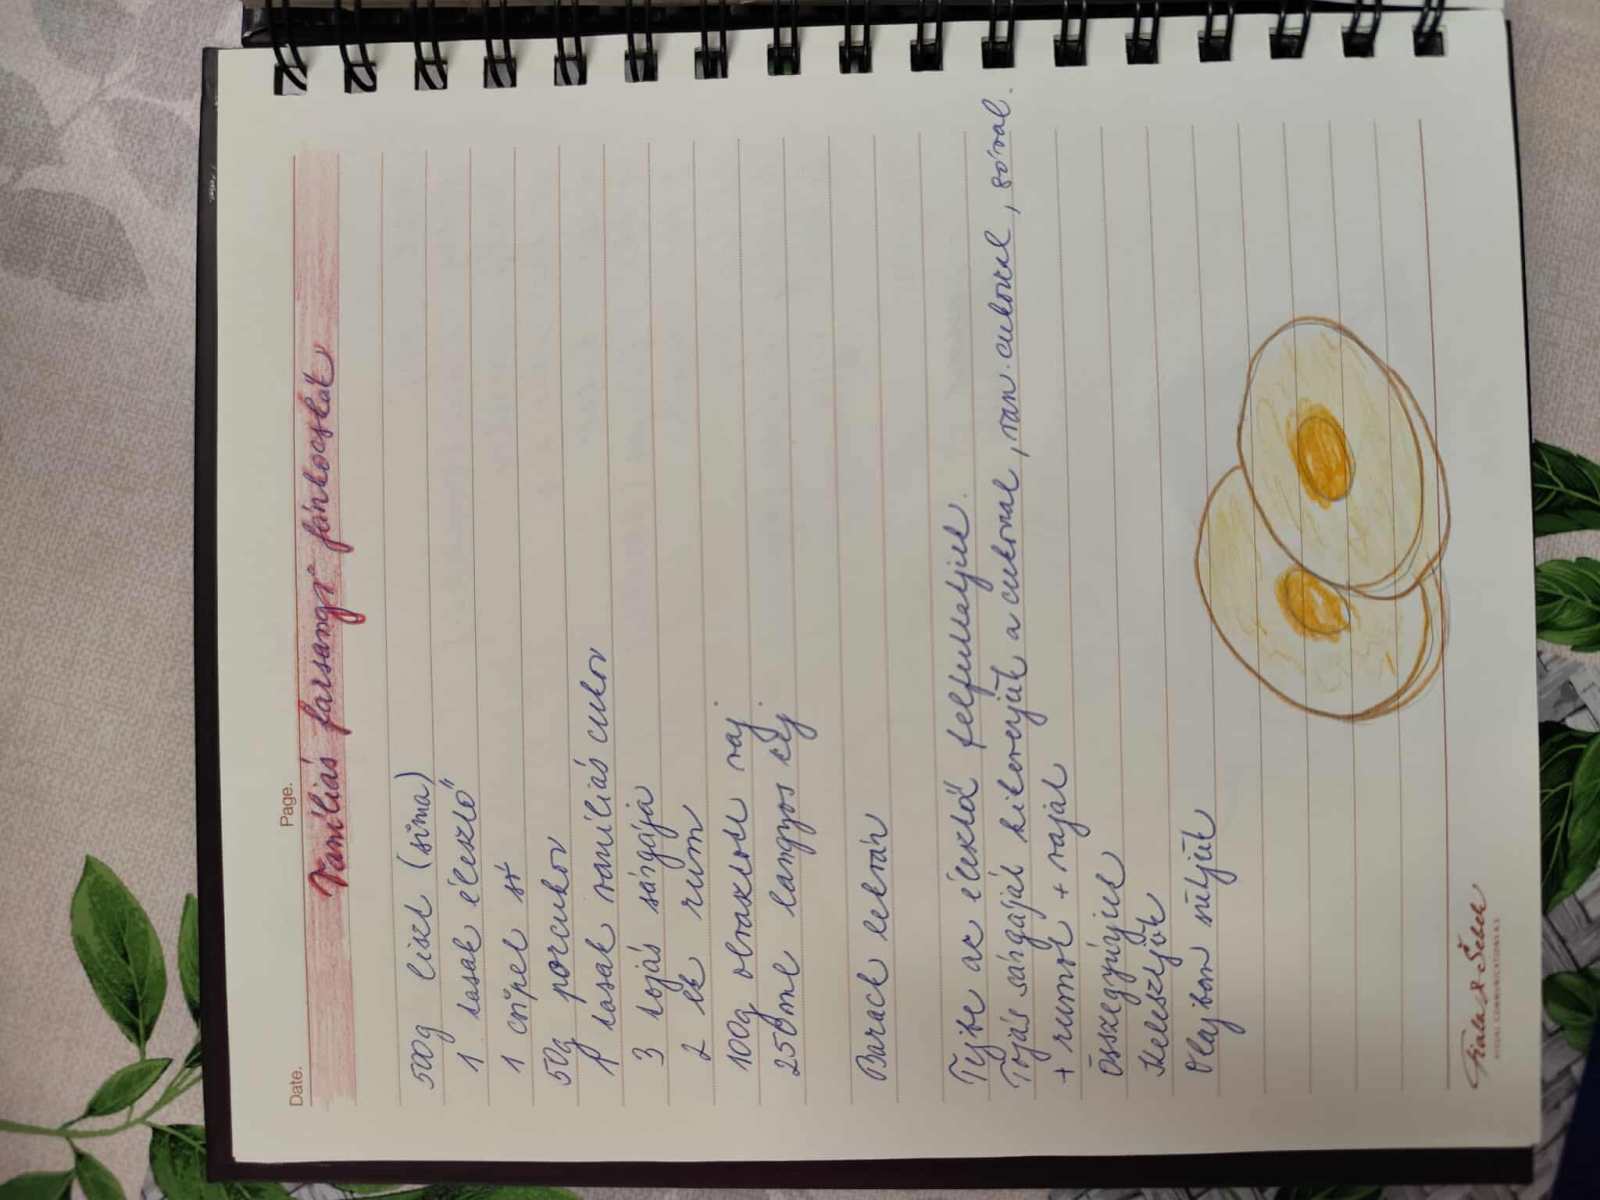 Date.
Page.
Vaníliás farsangi fánkocskák
500g liszt (sima)
1 tasak élesztő
1 csipet só
50g porcukor
1 tasak vaníliás cukor
3 tojás sárgája
2 ek rum
100g olvasztott vaj
250ml langyos tej
Barack lekvár
Tejbe az élesztőt felfuttatjuk.
Tojás sárgáját kikeverjük a cukorral, van. cukorral, sóval.
+ rumot + vajat
Összegyúrjuk
Kelesztjük
Olajban sütjük
Fiala & Šebek
VISUAL COMMUNICATION A.S.